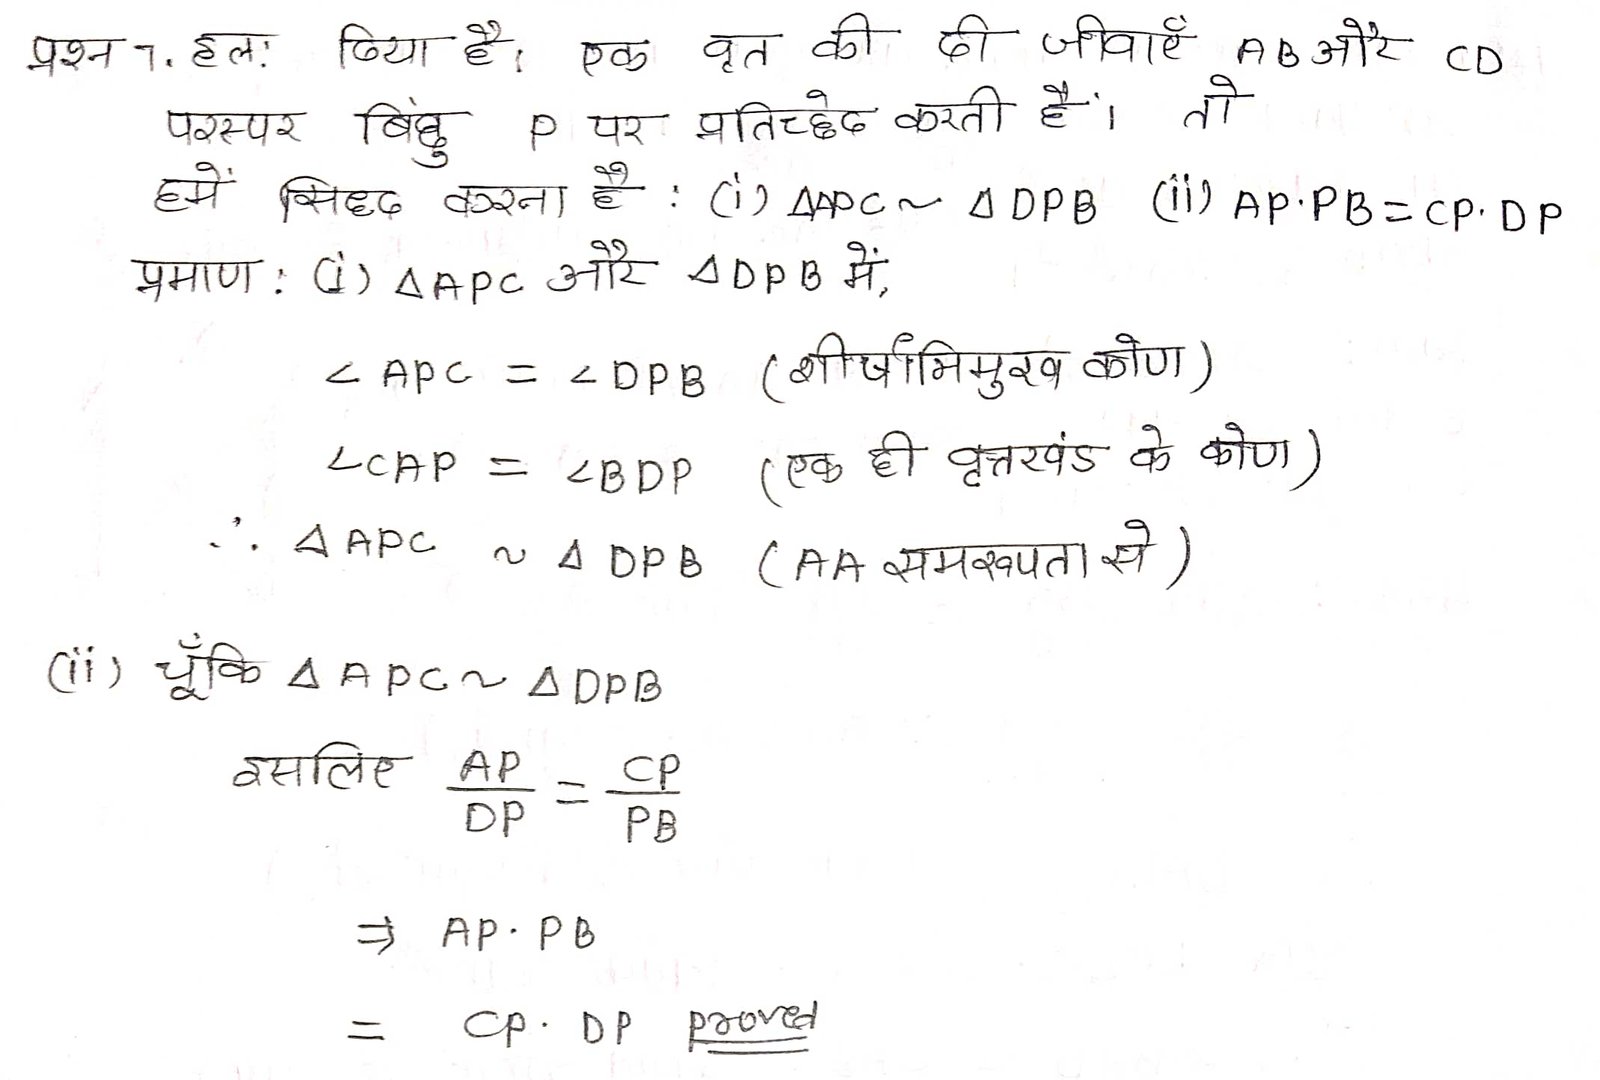 प्रश्न 7. हल: दिया है। एक वृत की दो जीवाएँ AB और CD
परस्पर बिंदु P पर प्रतिच्छेद करती हैं। तो
हमें सिद्द करना है : (i) ΔAPC ~ Δ DPB (ii) AP·PB = CP·DP
प्रमाण : (i) ΔAPC और ΔDPB में,
∠APC = ∠DPB (शीर्षाभिमुख कोण)
∠CAP = ∠BDP (एक ही वृत्तखंड के कोण)
∴ ΔAPC ~ Δ DPB (AA समरूपता से)
(ii) चूँकि ΔAPC ~ ΔDPB
इसलिए AP/DP = CP/PB
⇒ AP· PB
= CP· DP proved